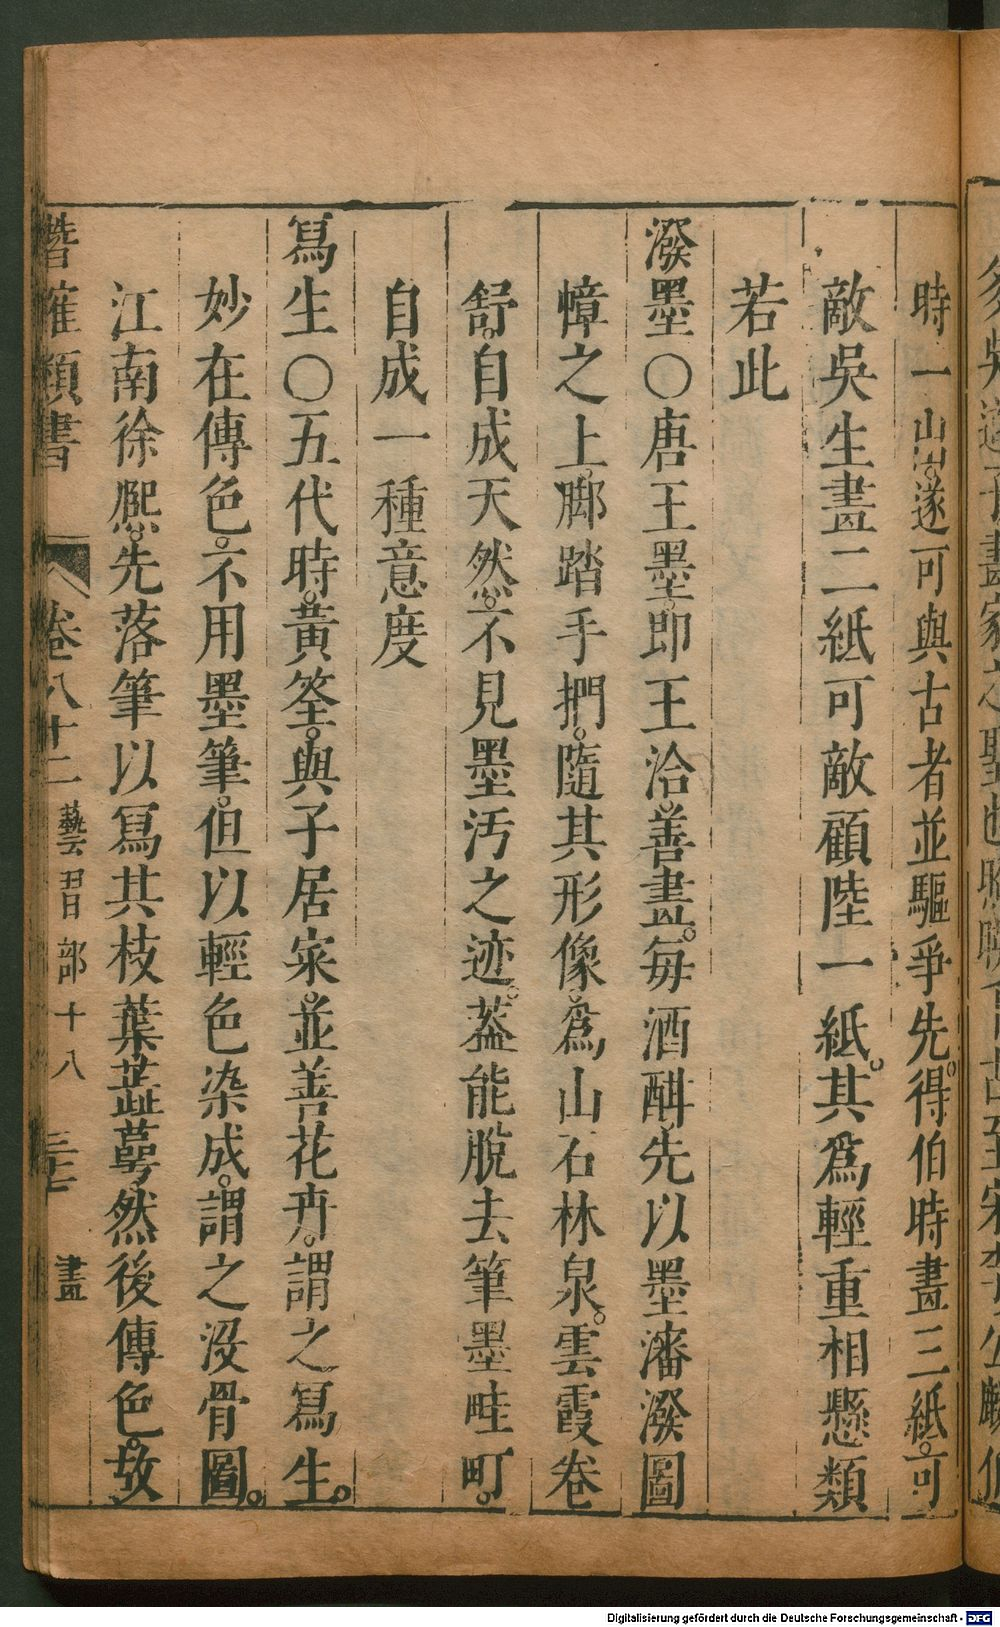 時一山出遂可與古者並驅爭先。得伯時畫三紙。可
敵吳生畫二紙可敵顧陸一紙。其爲輕重相懸類
若此
潑墨○唐王墨。即王洽。善畫。每酒酣。先以墨瀋潑圖
幛之上。脚踏手捫。隨其形像。爲山石林泉。雲霞卷
舒。自成天然。不見墨汚之迹。葢能脫去筆墨畦町。
自成一種意度
寫生○五代時。黃筌。與子居寀。並善花卉。謂之寫生。
妙在傳色。不用墨筆。但以輕色染成。謂之沒骨圖。
江南徐熈。先落筆以寫其枝葉蕋萼。然後傳色。故
潛確類書 卷八十二 藝習部十八 三十七 畫
Digitalisierung gefördert durch die Deutsche Forschungsgemeinschaft - DFG